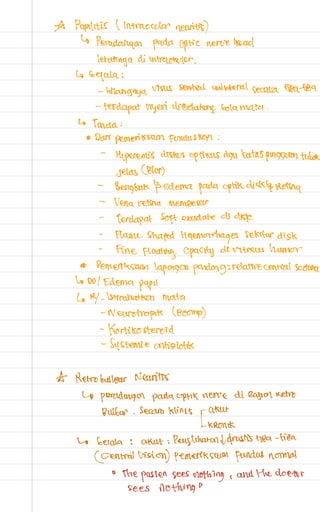 ☆ Papilitis (Intraocular neuritis)
↳ Peradangan pada optic nerve head
letaknya di intraokuler.
↳ Gejala :
- hilangnya visus sentral unilateral secara tiba-tiba
- terdapat nyeri dibelakang bola mata.
↳ Tanda :
• Dari pemeriksaan Funduskopi :
- Hiperemis diskus optikus dgn batas pinggiran tidak
jelas (Blur)
- Bengkak & edema pada optik disk & retina
- Vena retina membesar
- Terdapat Soft exudate di disk
- Flame Shaped Haemorrhages sekitar disk
- Fine Floating Opacity di vitreus humor
• Pemeriksaan lapangan pandang : relative central scotoma
↳ DD/ Edema papil
↳ R/- Istirahatkan mata
- Neurotropik
- Kortikosteroid
- Systemic antibiotik
☆ Retrobulbar Neuritis
↳ peradangan pada optik nerve di Bagian Retro
Bulbar. Secara klinis akut
kronik
↳ Gejala : akut : Penglihatan ↓ drastis tiba-tiba
(Central Vision) Pemeriksaan Fundus normal
" The pasien sees nothing, and the doctor
sees nothing "